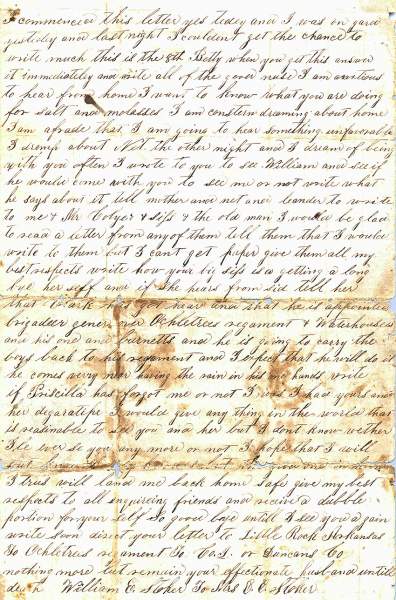 I commenced this letter yestedey and I was on gard
yestidy and last night I couldent get the chance to
write much this is the 8th Betty when you get this answer
it immediately and write all of the good nuse I am anxious
to hear from home I want to know what you are doing
for salt and molasses I am constern dreaming about home
I am afrade that I am going to hear something unfavorable
I dremp about Net the other night and I dream of being
with you often I wrote to you to see William and see if
he would come with you to see me or not write what
he says about it tell mother and net and leander to write
to me & Mr Colyer & siss & the old man I would be glad
to read a letter from any of them tell them that I would
write to them but I can't get paper give them all my
best respects write how your big siss is a getting a long
bye her self and if she hears from sid tell her
that Clark is got here and that he is appointed
brigadder general over Ochletrees regament & Waterhouses
and his one and Burnetts and he is going to carry the
boys back to his regament and I expect that he will do it
he comes very near having the rain in his one hands write
if Priscilla has forgot me or not I wish I had yours and
her degaratipe I would give any thing in the world that
is reasonable to see you and her but I dont know wether
Ile ever se you any more or not I hope that I will
but
I trus will land me back home safe give my best
respects to all enquiring friends and receive a dubble
portion for your self So good bye untill I see you a gain
write soon direct your letter to Little Rock Arkansas
To Ochletrus regament To Co. I. or Duncans Co
nothing more but remain your effectionate husband untill
death William E Stoker To Mrs E. E. Stoker